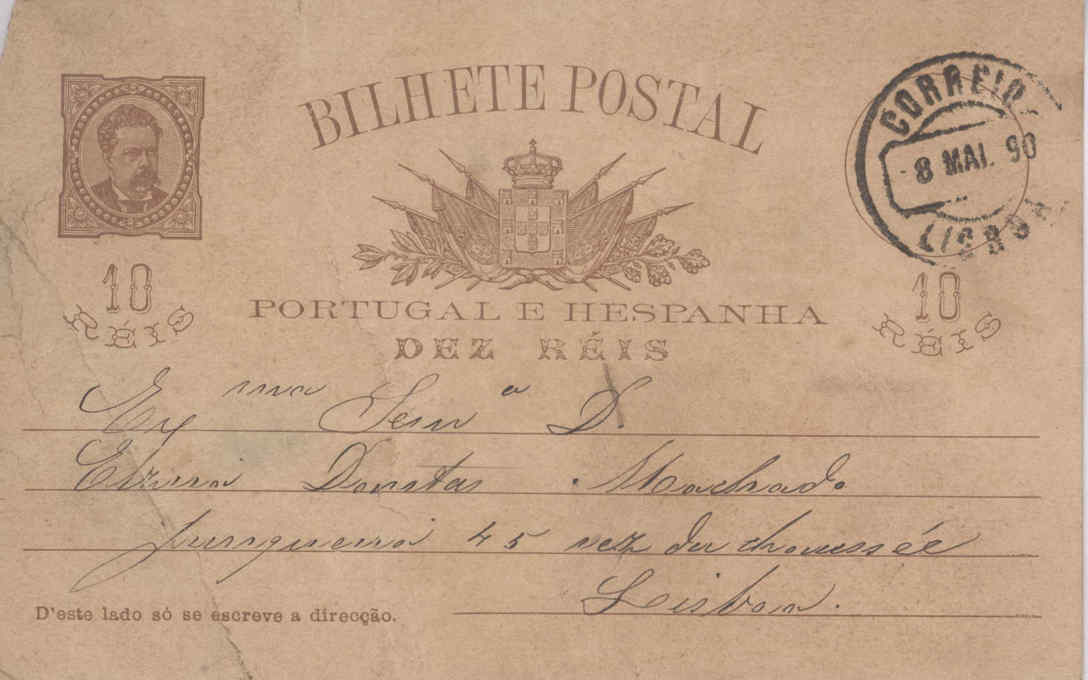 BILHETE POSTAL
CORREIO
8 MAI. 90
LISBOA
10
RÉIS
10
RÉIS
PORTUGAL E HESPANHA
DEZ RÉIS
Exma Senra D.
Machado
Junqueira 45 rez du chaussée
Lisboa.
D'este lado só se escreve a direcção.